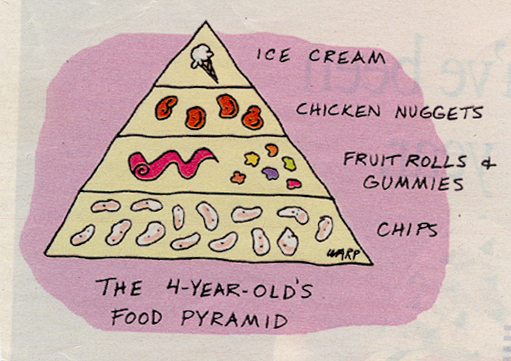 ICE CREAM
CHICKEN NUGGETS
FRUIT ROLLS &
GUMMIES
CHIPS
WARP
THE 4-YEAR-OLD'S
FOOD PYRAMID
've been
year